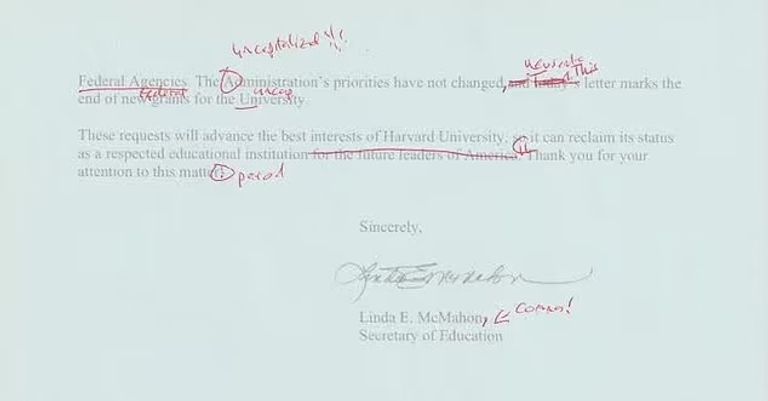 uncapitalized !!!
rewrite
This
Federal Agencies. The Administration's priorities have not changed, and today's letter marks the
Federal uncap
end of new grants for the University.
These requests will advance the best interests of Harvard University, so it can reclaim its status
as a respected educational institution for the future leaders of America. Thank you for your
attention to this matter! period
Sincerely,
Linda E. McMahon
Linda E. McMahon, comma!
Secretary of Education